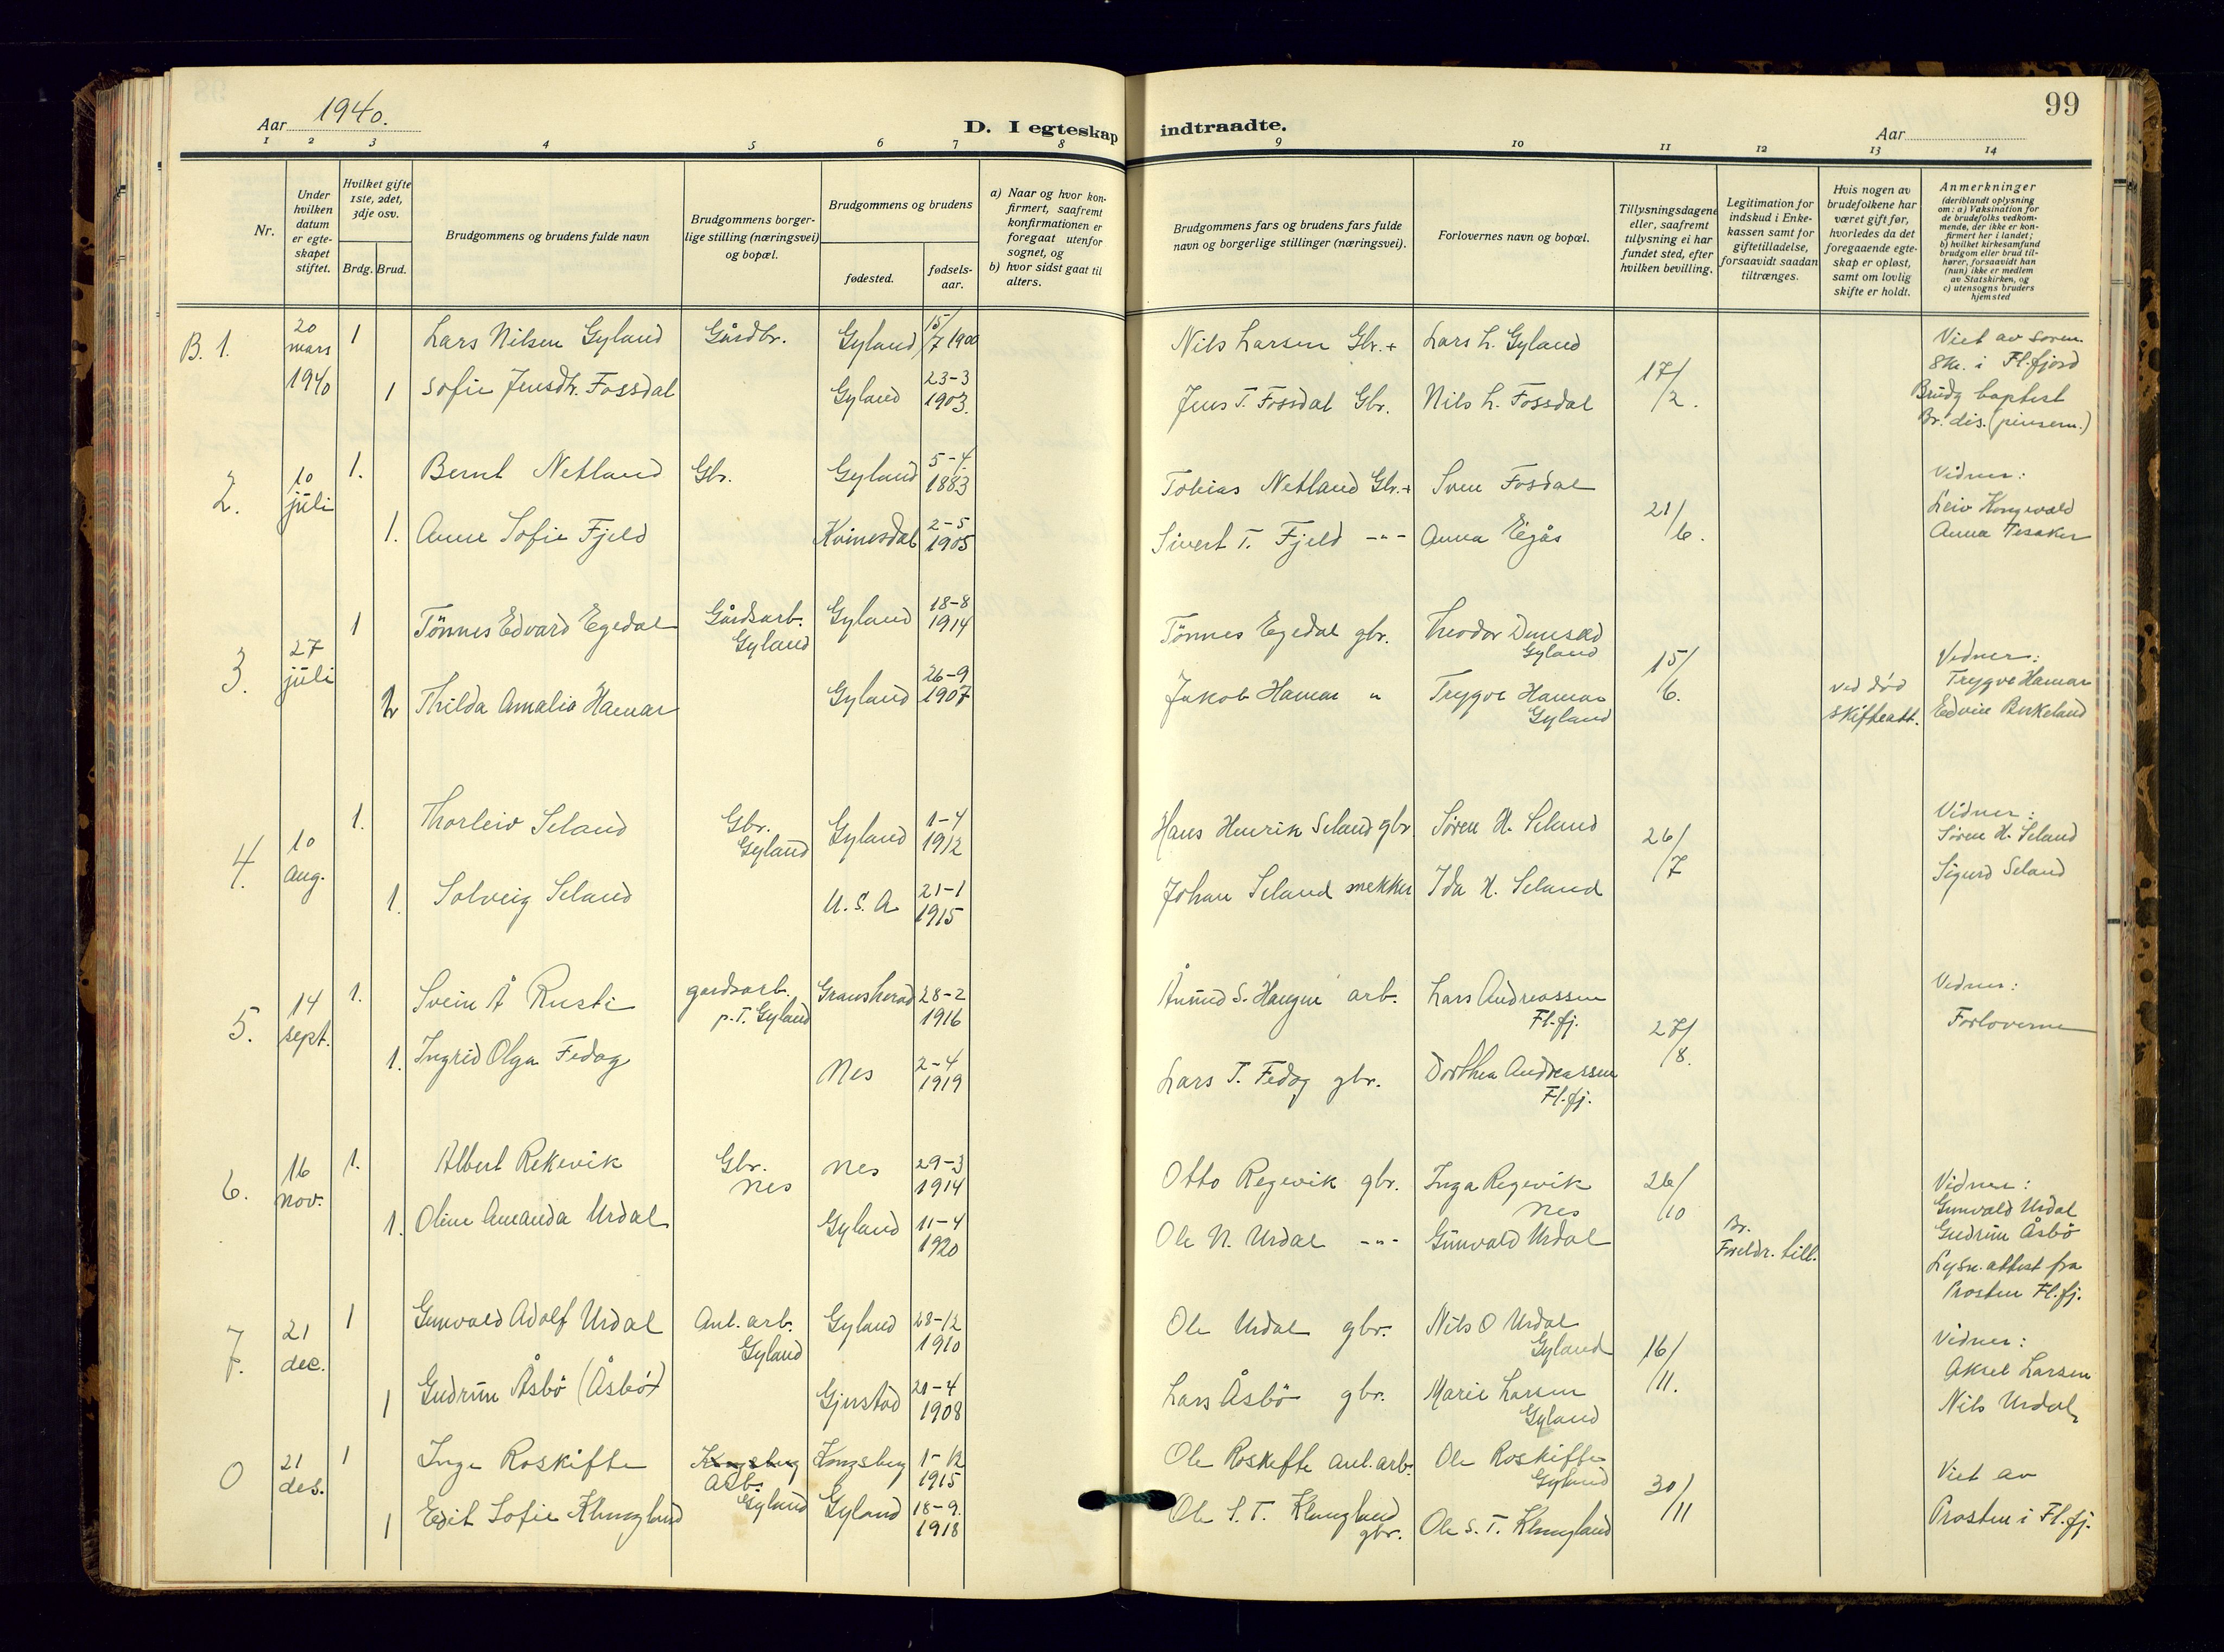 99
Aar 1940.
D. I egteskap indtraadte.
Aar
1 2 3 4 5 6 7 8 9 10 11 12 13 14
Nr.
Under hvilken datum er egteskapet stiftet.
Hvilket gifte 1ste, 2det, 3dje osv.
Brdg. Brud.
Brudgommens og brudens fulde navn
Brudgommens borgerlige stilling (næringsvei) og bopæl.
Brudgommens og brudens
fødested.
fødselsaar.
a) Naar og hvor konfirmert, saafremt konfirmationen er foregaat utenfor sognet, og
b) hvor sidst gaat til alters.
Brudgommens fars og brudens fars fulde navn og borgerlige stillinger (næringsvei).
Forlovernes navn og bopæl.
Tillysningsdagene eller, saafremt tillysning ei har fundet sted, efter hvilken bevilling.
Legitimation for indskud i Enkekassen samt for giftetilladelse, forsaavidt saadan tiltrænges.
Hvis nogen av brudefolkene har været gift før, hvorledes da det foregaaende egteskap er opløst, samt om lovlig skifte er holdt.
Anmerkninger (deriblandt oplysning om: a) Vaksination for de brudefolks vedkommende, der ikke er konfirmert her i landet; b) hvilket kirkesamfund brudgom eller brud tilhører, forsaavidt han (hun) ikke er medlem av Statskirken, og c) utensogns bruders hjemsted
B. 1. 20 mars 1940 1 Lars Nilsen Gyland Gårdbr. Gyland 15/7 1900 Nils Larsen Gbr. + Lars L. Gyland 17/2. Viet av soren
skr. i Fl.fjord
1 Sofie Jensdtr. Fossdal Gyland 23-3 1903. Jens T. Fossdal Gbr. Nils L. Fossdal Brudg baptist
Br. dis. (pinsem.)
2. 10 juli 1. Bernt Netland Gbr. Gyland 5-4 1883 Tobias Netland Gbr. + Sven Fosdal 21/6. Vidner:
Leiv Kongevold
1. Anne Sofie Fjeld Kvinesdal 2-5 1905 Sivert T. Fjeld -"- Anna Eigås Anna Tesaker
3. 27 juli 1 Tönnes Edvard Egedal Gårdsarb. Gyland Gyland 18-8 1914 Tönnes Egedal gbr. Theodor Dunsæd Gyland 15/6. Vidner:
2 Thilda Amalia Hamar Gyland 26-9 1907 Jakob Hamar " Trygve Hamar Gyland ved død skifteatt. Trygve Hamar
Edvin Birkeland
4. 10 aug. 1. Thorleiv Seland Gbr. Gyland Gyland 1-4 1912 Hans Henrik Seland gbr. Søren H. Seland 26/7 Vidner:
Søren H. Seland
1. Solveig Seland U.S.A 21-1 1915 Johan Seland snekker Ida H. Seland Sigurd Seland
5. 14 sept. 1. Svein Å Rusti gardsarb. p.T. Gyland Gransherad 28-2 1916 Åmund S. Haugen arb. Lars Andreassen Fl.fj. 27/8. Vidner:
Forloverne
1. Ingrid Olga Fedog Nes 2-4 1919 Lars T. Fedog gbr. Dorthea Andreassen Fl.fj.
6. 16 nov. 1. Albert Rekevik Gbr. Nes Nes 29-3 1914 Otto Regevik gbr. Inga Regevik Nes 26/10 Vidner:
Gunvald Urdal
1. Oline Amanda Urdal Gyland 11-4 1920 Ole N. Urdal -"- Gunvald Urdal Br. Foreldr. till. Gudrun Åsbö
Lysn.attest fra
Prosten Fl.fj.
7. 21 dec. 1 Gunvald Adolf Urdal Anl. arb. Gyland Gyland 28-12 1910 Ole Urdal gbr. Nils O Urdal Gyland 16/11. Vidner:
Aksel Larsen
1 Gudrun Åsbö (Åsbö) Gjerstad 21-4 1908 Lars Åsbö gbr. Marie Larsen Gyland Nils Urdal
0 21 des. 1 Inge Roskifte Kongsberg Arb. Gyland Kongsberg 1-12 1915 Ole Roskifte anl.arb. Ole Roskifte Gyland 30/11 Viet av
1 Edit Sofie Klungland Gyland 18-9. 1918 Ole S. T. Klungland gbr. Ole S. T. Klungland Prosten i Fl.fj.